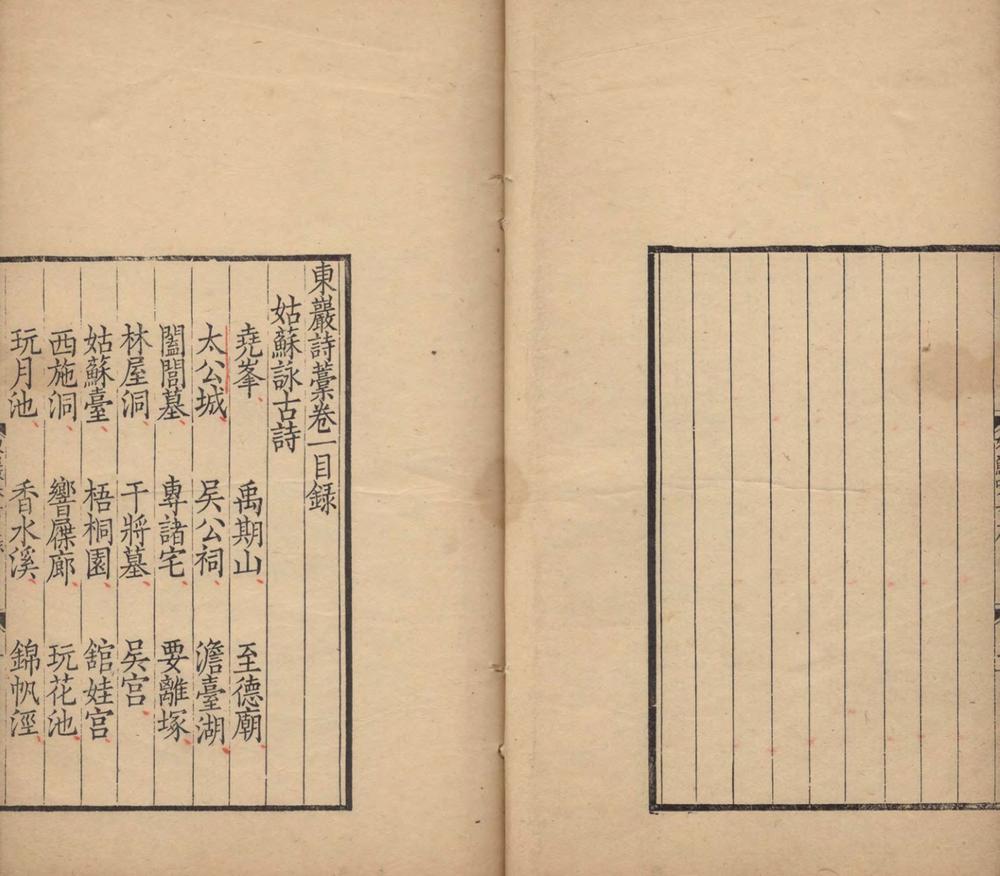 東巖詩藳卷一目録
姑蘇詠古詩
堯峯 禹期山 至德廟
太公城 吳公祠 澹臺湖
闔閭墓 專諸宅 要離塚
林屋洞 干將墓 吳宫
姑蘇臺 梧桐園 舘娃宫
西施洞 響屧廊 玩花池
玩月池 香水溪 錦帆涇